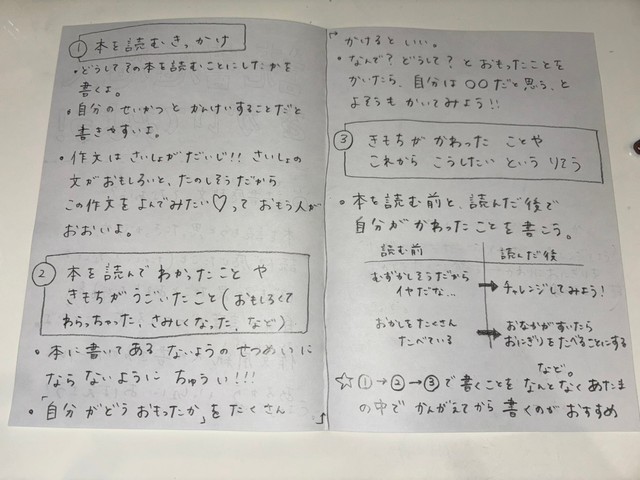 ① 本を読むきっかけ
・どうしてその本を読むことにしたかを
書くよ。
・自分のせいかつとかんけいすることだと
書きやすいよ。
・作文はさいしょがだいじ!! さいしょの
文がおもしろいと、たのしそうだから
この作文をよんでみたい♡って おもう人が
おおいよ。
② 本を読んで わかったこと や
きもちがうごいたこと(おもしろくて
わらっちゃった、さみしくなった、など)
・本に書いてある ないようのせつめいに
ならないように ちゅうい!!!
・「自分がどうおもったか」をたくさん
かけるといい。
・なんで?どうして?とおもったことを
かいたら、自分は〇〇だと思う、と
よそうもかいてみよう!!
③ きもちが かわった ことや
これから こうしたい という りそう
・本を読む前と、読んだ後で
自分がかわったことを書こう。
読む前 読んだ後
むずかしそうだから
イヤだな… → チャレンジしてみよう!
おかしをたくさん
たべている → おなかがすいたら
おにぎりをたべることにする
など。
☆①→②→③で書くことをなんとなくあたま
の中でかんがえてから書くのがおすすめ